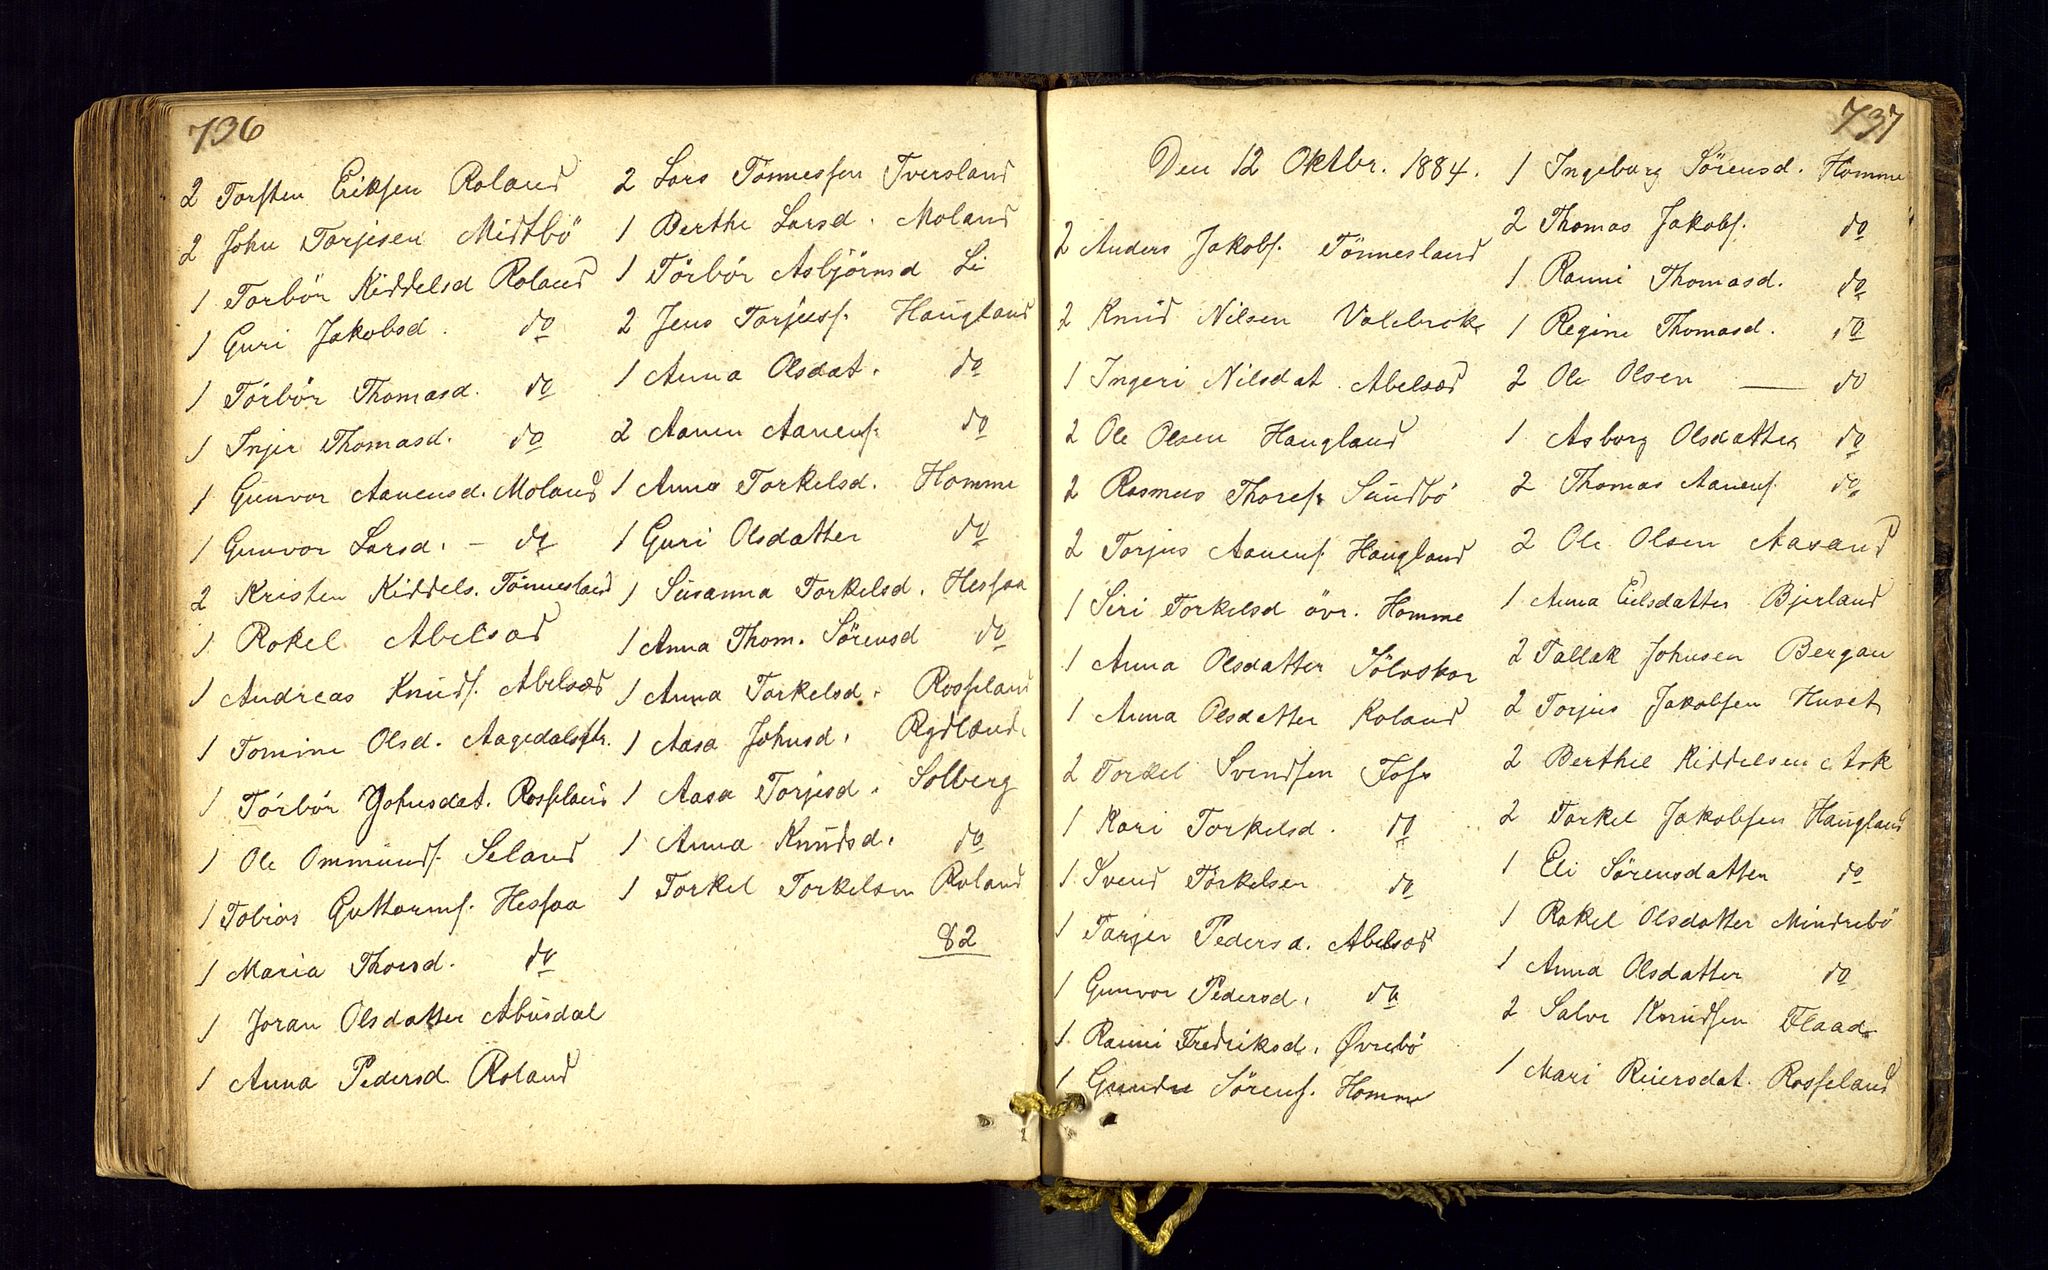 736
2 Torsten Eriksen Roland
2 John Torjesen Midtbö
1 Torbör Kiddelsd Roland
1 Guri Jakobsd. do
1 Törbör Thomasd. do
1 Injer Thomasd. do
1 Gunvor Aanensd. Moland
1 Gunvor Larsd. – do
2 Kristen Kiddels. Tönnesland
1 Rakel Abelsæd
1 Andreas Knuds. Abelsæd
1 Tomine Olsd. Aagedalsflr.
1 Törbör Johnsdat. Rosseland
1 Ole Ommunds. Seland
1 Tobias Guttorms. Hessaa
1 Maria Thorsd. do
1 Joran Olsdatter Abusdal
1 Anna Pedersd Roland
2 Lars Tönnessen Tversland
1 Berthe Larsd. Moland
1 Törbör Asbjörnsd Li
2 Jens Torjuss. Haugland
1 Anna Olsdat. do
2 Aanen Aanens. do
1 Anna Torkelsd. Homme
1 Guri Olsdatter do
1 Susanna Torkelsd. Hessaa
1 Anna Thom. Sörensd do
1 Anna Torkelsd. Rosseland
1 Aasa Johnsd. Rydland.
1 Aasa Torjisd. Solberg
1 Anna Knudsd. do
1 Torkel Torkelsen Roland
82
737
Den 12 Oktbr. 1884.
2 Anders Jakobs. Tönnesland
2 Knud Nilsen Valebrok
1 Ingeri Nilsdat. Abelsæd
2 Ole Olsen Haugland
2 Rasmus Thores. Sundbö
2 Torjus Aanens. Haugland
1 Siri Torkelsd övr. Homme
1 Anna Olsdatter Sölvskar
1 Anna Olsdatter Roland
2 Torkel Svendsen Foss
1 Kari Torkelsd. do
1 Svend Törkelsen do
1 Torjer Pedersd. Abelsæd
1 Gunvor Pedersd. do
1 Ranni Fredriksd. Øvrebö
1 Sörens. Homme
1 Ingeborg Sörensd. Homme
2 Thomas Jakobs. do
1 Ranni Thomasd. do
1 Regine Thomasd. do
2 Ole Olsen — do
1 Asborg Olsdatter do
2 Thomas Aanens. do
2 Ole Olsen Aasand
1 Anna Eilsdatter Bjerland
2 Tallak Johnsen Bergan
2 Torjus Jakobsen Huset
2 Berthil Kiddelsen Ask
2 Torkel Jakobsen Haugland
1 Eli Sörensdatter do
1 Rakel Olsdatter Mindrebö
1 Anna Olsdatter do
2 Salve Knudsen Flaade
1 Mari Reiersdat. Rosseland